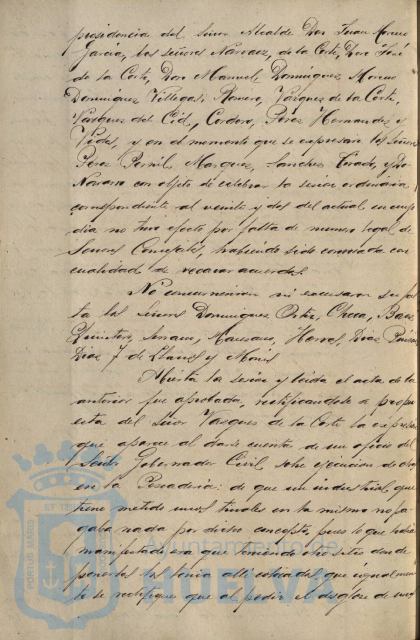 presidencia del Señor Alcalde Don Juan Moreno
García, los señores Narvaez, de la Corte, Don José
de la Corte, Don Manuel, Dominguez, Moreno
Dominguez Villegas, Romero, Vazquez de la Corte,
Vazquez del Cid, Cordero, Perez Hernandez y
Vides, y en el momento que se expresan los Señores
Perez Marquez, Sanchez
Navarro con objeto de celebrar la sesion ordinaria
correspondiente al veinte y dos del actual en cuyo
dia no tuvo efecto por falta de numero legal de
Señores Concejales, habiendo sido convocada con
cualidad de recaer acuerdos.
No concurrieron ni escusaron su fal
ta los Señores Dominguez Ortiz, Checa, Baez
Quintero, Serrano, Diaz
Diaz J. de Llanos y
Abierta la sesion y leida el acta de la
anterior fue aprobada, rectificandose a propu
esta del Señor Vazquez de la Corte la expresion
que aparece al darse cuenta de un oficio del
Señor Gobernador Civil, sobre ejecucion de obras
en la Pescaderia: de que un industrial, que
tiene metido unos en la misma no pa
gaba nada por dicho concepto, pues lo que habia
manifestado era que teniendo otro sitio donde
ponerlos los tenia alli colocados, que igualmen
te se rectifique que al pedir el desglose de unos
PORTUS MARIS ET
Ayuntamiento de
HUELVA